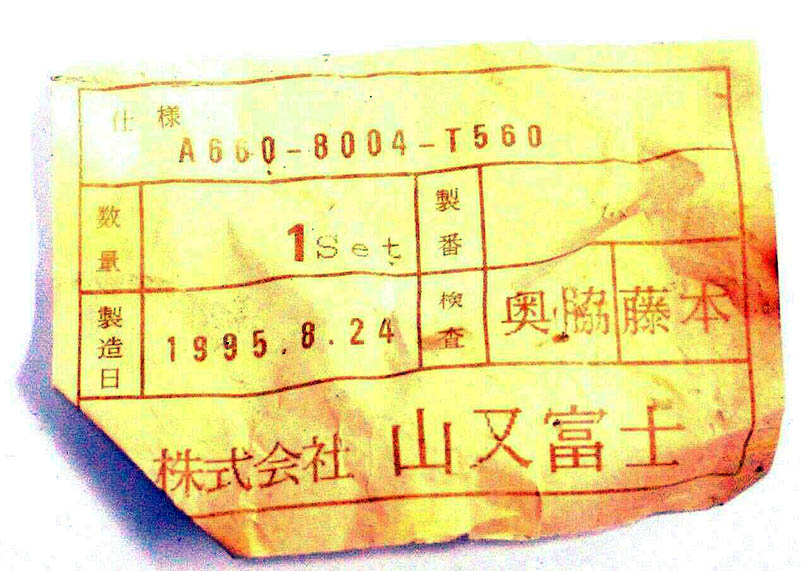 仕様
A660-8004-T560
数量 1Set 製番
製造日 1995.8.24 検査 奥脇 藤本
株式会社 山又富士